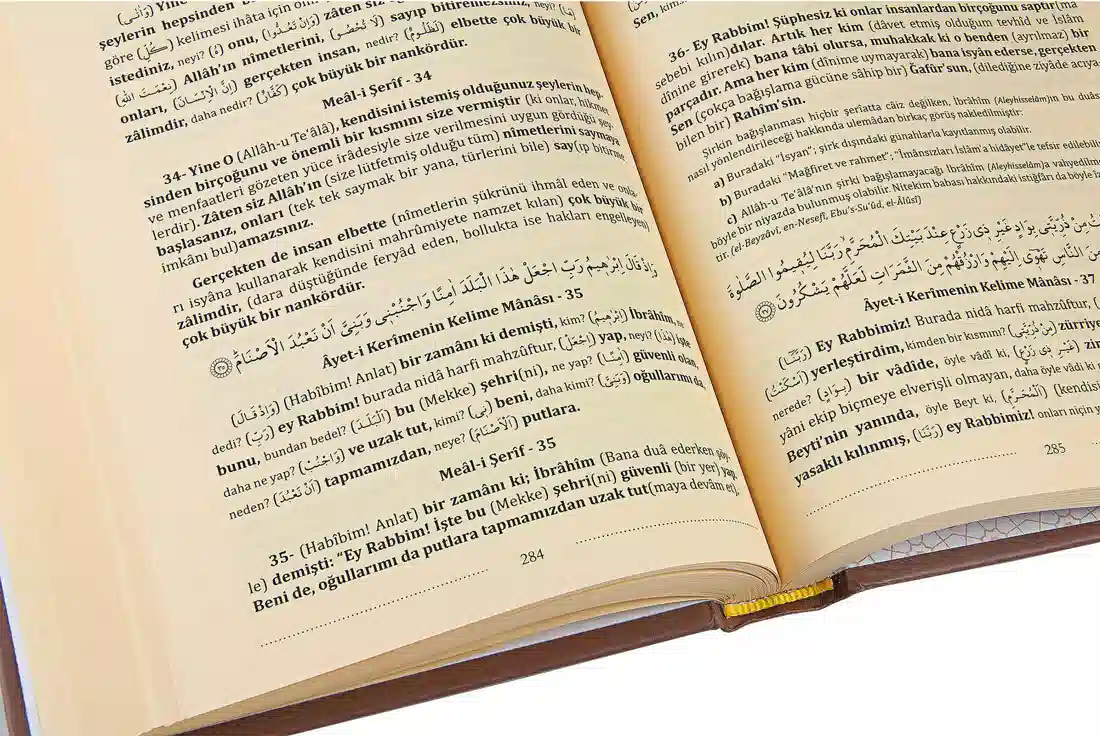 (وَأٰتٰى) Yine O
şeylerin hepsinden b
göre (كُلِّ) kelimesi ihâta için olm
istediniz, neyi? (هُ) onu, (وَاِنْ تَعُدُّوا) zâten siz
(نِعْمَتَ اللّٰهِ) Allâh'ın nîmetlerini, (لَا تُحْصُو) sayıp bitiremezsiniz, neyi? (هَا)
onları, (اِنَّ الْاِنْسَانَ) gerçekten insan, nedir? (لَظَلُومٌ) elbette çok büyük bir
zâlimdir, daha nedir? (كَفَّارٌ) çok büyük bir nankördür.
Meâl-i Şerîf - 34
34- Yine O (Allâh-u Te'âlâ), kendisini istemiş olduğunuz şeylerin hep-
sinden birçoğunu ve önemli bir kısmını size vermiştir (ki onlar, hikmet
ve menfaatleri gözeten yüce irâdesiyle size verilmesini uygun gördüğü şey-
lerdir). Zâten siz Allâh'ın (size lütfetmiş olduğu tüm) nîmetlerini saymaya
başlasanız, onları (tek tek saymak bir yana, türlerini bile) say(ıp bitirme
imkânı bul)amazsınız.
Gerçekten de insan elbette (nîmetlerin şükrünü ihmâl eden ve onla-
rı isyâna kullanarak kendisini mahrumiyete namzet kılan) çok büyük bir
zâlimdir, (dara düştüğünde feryâd eden, bollukta ise hakları engelleyen)
çok büyük bir nankördür.
وَاِذْ قَالَ اِبْرٰه۪يمُ رَبِّ اجْعَلْ هٰذَا الْبَلَدَ اٰمِنًا وَاجْنُبْن۪ي وَبَنِيَّ اَنْ نَعْبُدَ الْاَصْنَامَۜ ﴿٣٥﴾
Âyet-i Kerîmenin Kelime Mânâsı - 35
(وَاِذْ قَالَ) (Habîbim! Anlat) bir zamânı ki demişti, kim? (اِبْرٰه۪يمُ) İbrâhîm, ne
dedi? (رَبِّ) ey Rabbim! burada nidâ harfi mahzûftur, (اجْعَلْ) yap, neyi? (هٰذَا) işte
bunu, bundan bedel? (الْبَلَدَ) bu (Mekke) şehri(ni), ne yap? (اٰمِنًا) güvenli olan,
daha ne yap? (وَاجْنُبْ) ve uzak tut, kimi? (ن۪ي) beni, daha kimi? (وَبَنِيَّ) oğullarımı da,
neden? (اَنْ نَعْبُدَ) tapmamızdan, neye? (الْاَصْنَامَ) putlara.
Meâl-i Şerîf - 35
35- (Habîbim! Anlat) bir zamânı ki; İbrâhîm (Bana duâ ederken şöy-
le) demişti: “Ey Rabbim! İşte bu (Mekke) şehri(ni) güvenli (bir yer) yap.
Beni de, oğullarımı da putlara tapmamızdan uzak tut(maya devâm et).
284
Sen, kim
36- Ey Rabbim! Şüphesiz ki onlar insanlardan birçoğunu saptır(ma
sebebi kılın)dılar. Artık her kim (dâvet etmiş olduğum tevhîd ve İslâm
dînine girerek) bana tâbi olursa, muhakkak ki o benden (ayrılmaz) bir
parçadır. Ama her kim (dînime uymayarak) bana isyân ederse, gerçekten
Sen (çokça bağışlama gücüne sâhip bir) Ğafûr'sun, (dilediğine ziyâde acıya-
bilen bir) Rahîm'sin.
Şirkin bağışlanması hiçbir şerîatta câiz değilken, İbrâhîm (Aleyhisselâm)ın bu duâs
nasıl yönlendirileceği hakkında ulemâdan birkaç görüş nakledilmiştir:
a) Buradaki “İsyan”; şirk dışındaki günahlarla kayıtlanmış olabilir.
b) Buradaki “Mağfiret ve rahmet”; “Îmânsızları İslâm'a hidâyet”le tefsir edilebilir
c) Allâh-u Te'âlâ'nın şirki bağışlamayacağı İbrâhîm (Aleyhisselâm)a vahyedilm
böyle bir niyazda bulunmuş olabilir. Nitekim babası hakkındaki istiğfârı da böyle iz
tir. (el-Beyzâvî, en-Nesefî, Ebu's-Su'ûd, el-Âlûsî)
تُ مِنْ ذُرِّيَّت۪ي بِوَادٍ غَيْرِ ذ۪ي زَرْعٍ عِنْدَ بَيْتِكَ الْمُحَرَّمِۙ رَبَّنَا لِيُق۪يمُوا الصَّلٰوةَ
مِنَ النَّاسِ تَهْو۪ٓي اِلَيْهِمْ وَارْزُقْهُمْ مِنَ الثَّمَرَاتِ لَعَلَّهُمْ يَشْكُرُونَ ﴿٣٧﴾
Âyet-i Kerîmenin Kelime Mânâsı - 37
(رَبَّنَا) Ey Rabbimiz! Burada nidâ harfi mahzûftur, (
(اَسْكَنْتُ) yerleştirdim, kimden bir kısmım? (مِنْ ذُرِّيَّت۪ي) zürriye
nerede? (بِوَادٍ) bir vâdîde, öyle vâdî ki, (غَيْرِ ذ۪ي زَرْعٍ) zir
yâni ekip biçmeye elverişli olmayan, daha öyle vâdî ki n
Beyti'nin yanında, öyle Beyt ki, (الْمُحَرَّمِ) (kendisi
yasaklı kılınmış, (رَبَّنَا) ey Rabbimiz! onları niçin y
285